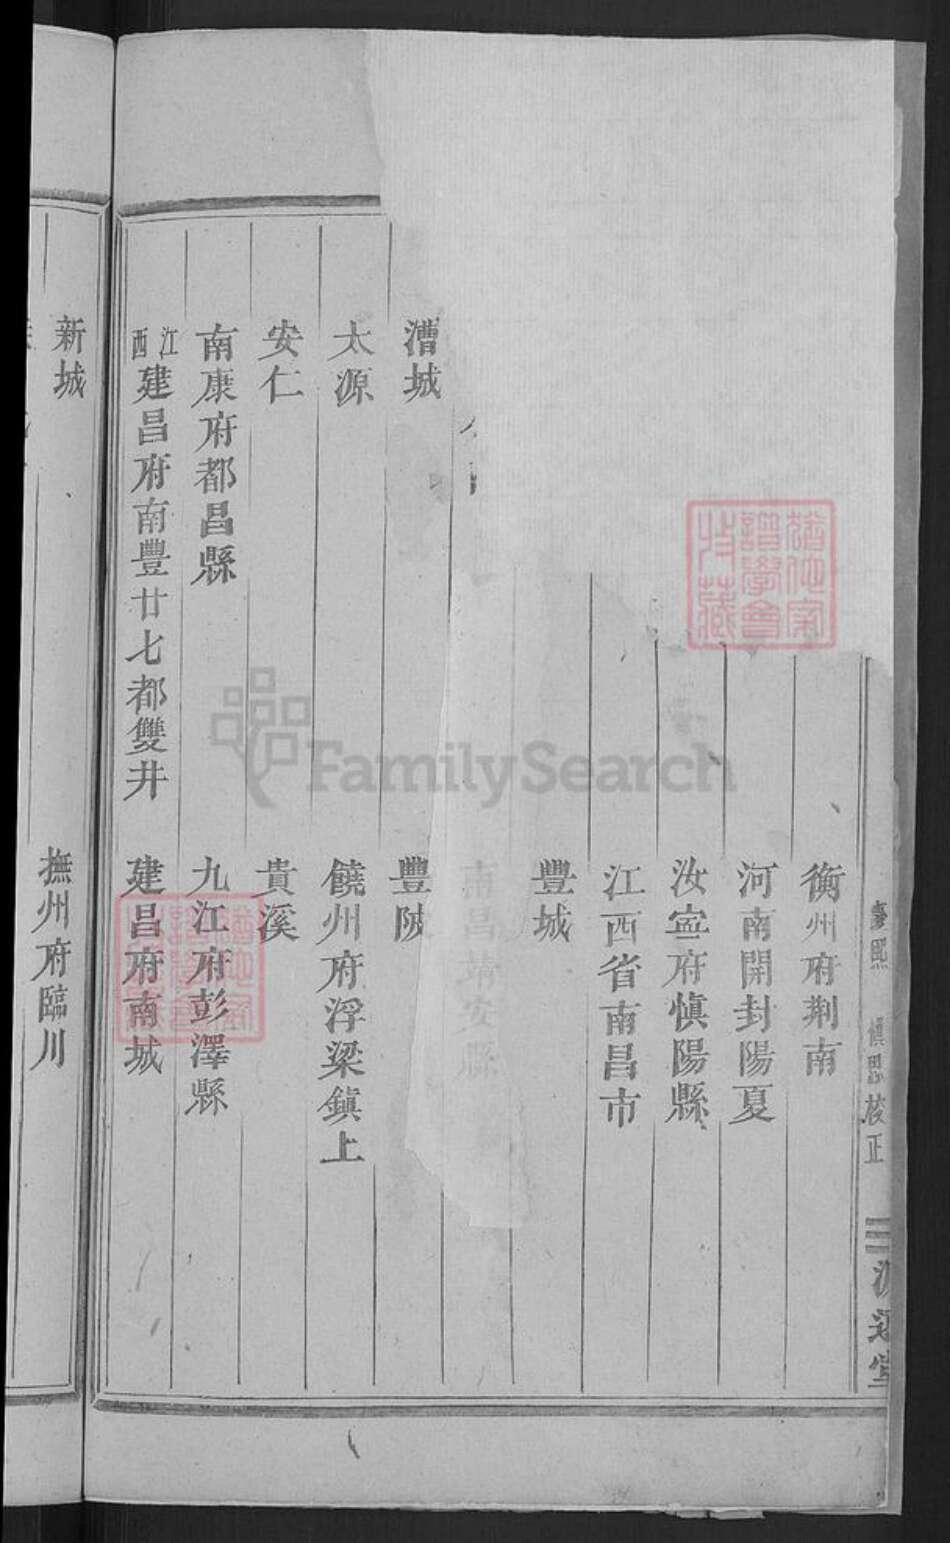 衡州府荆南
河南開封陽夏
汝寍府愼陽縣
江西省南昌市
豐城
南昌靖安縣
漕城
豐陂
太源
饒州府浮梁鎮上
安仁
貴溪
南康府都昌縣
九江府彭澤縣
江西建昌府南豐廿七都雙井
建昌府南城
新城
撫州府臨川
愼思校正
FamilySearch
譜學會
特藏